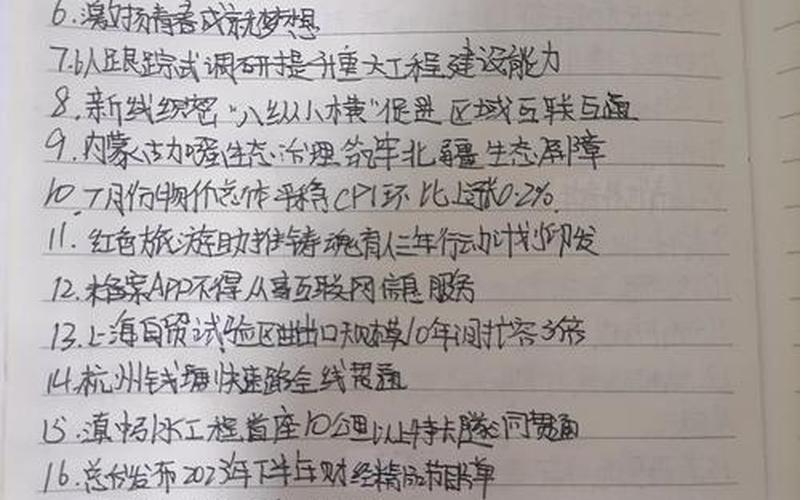 6.激扬青春成就梦想
7.以跟踪式调研提升重大工程建设能力
8.新线织密“八纵八横”促进区域互联互通
9.内蒙古加强生态治理筑牢北疆生态屏障
10.7月份物价总体平稳CPI环比上涨0.2%
11.红色旅游助推铸魂育人三年行动计划印发
12.未备案APP不得从事互联网信息服务
13.上海自贸试验区进出口规模10年间扩容3倍
14.杭州钱塘快速路全线贯通
15.滇中引水工程首座10公里以上特长隧洞贯通
16.总台发布2023年下半年财经精品节目片单